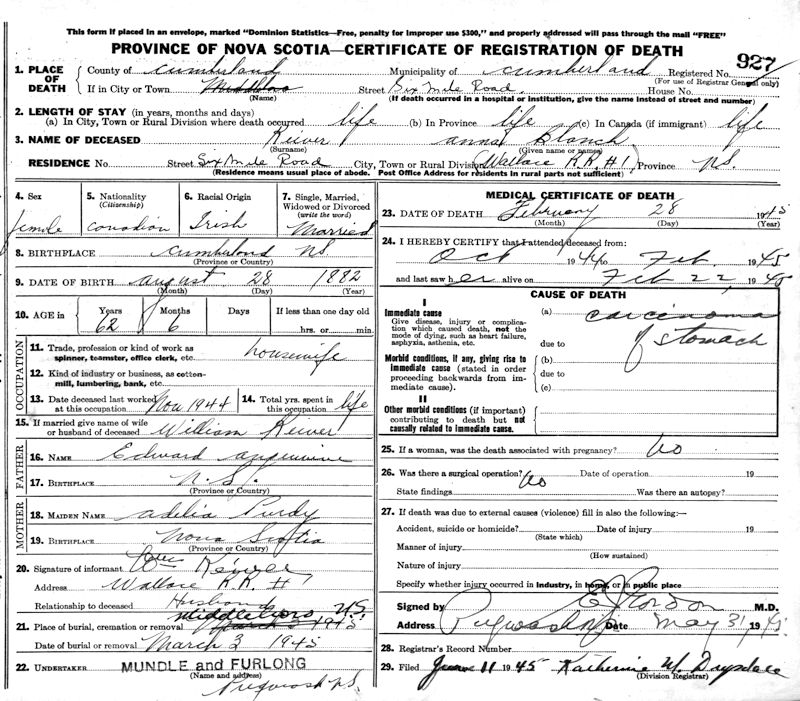 This form if placed in an envelope, marked "Dominion Statistics—Free, penalty for improper use $300," and properly addressed will pass through the mail "FREE"
PROVINCE OF NOVA SCOTIA—CERTIFICATE OF REGISTRATION OF DEATH
927
1. PLACE OF DEATH County of Cumberland Municipality of Cumberland Registered No. 7
(For use of Registrar General only)
If in City or Town Street Six Mile Road House No.
(Name) (If death occurred in a hospital or institution, give the name instead of street and number)
2. LENGTH OF STAY (in years, months and days)
(a) In City, Town or Rural Division where death occurred life (b) In Province life (c) In Canada (if immigrant) life
3. NAME OF DECEASED Reiver anna Blanch
(Surname) (Given name or names)
RESIDENCE No. Street Six Mile Road City, Town or Rural Division Wallace R.R. #1 Province N.S.
(Residence means usual place of abode. Post Office Address for residents in rural parts not sufficient)
4. Sex female
5. Nationality (Citizenship) Canadian
6. Racial Origin Irish
7. Single, Married, Widowed or Divorced (write the word) Married
8. BIRTHPLACE Cumberland NS
(Province or Country)
9. DATE OF BIRTH august 28 1882
(Month) (Day) (Year)
10. AGE in Years Months Days If less than one day old
62 6 hrs. or min.
OCCUPATION
11. Trade, profession or kind of work as spinner, teamster, office clerk, etc. housewife
12. Kind of industry or business, as cotton-mill, lumbering, bank, etc.
13. Date deceased last worked at this occupation Nov 1944 14. Total yrs. spent in this occupation life
15. If married give name of wife or husband of deceased William Reiver
FATHER
16. NAME Edward
17. BIRTHPLACE N.S.
(Province or Country)
MOTHER
18. MAIDEN NAME adelia Purdy
19. BIRTHPLACE Nova Scotia
(Province or Country)
20. Signature of informant Wm Reiver
Address Wallace R.R. #1
Relationship to deceased Husband
Middleboro NS
21. Place of burial, cremation or removal March 3 1945
Date of burial or removal March 3 1945
22. UNDERTAKER MUNDLE and FURLONG
(Name and address)
Pugwash N.S.
MEDICAL CERTIFICATE OF DEATH
23. DATE OF DEATH February 28 1945
(Month) (Day) (Year)
24. I HEREBY CERTIFY that I attended deceased from:
Oct 1944 to Feb. 1945
and last saw her alive on Feb 22, 1945
CAUSE OF DEATH
I
Immediate cause
Give disease, injury or complication which caused death, not the mode of dying, such as heart failure, asphyxia, asthenia, etc.
(a) carcinoma
due to of stomach
Morbid conditions, if any, giving rise to immediate cause (stated in order proceeding backwards from immediate cause).
(b)
due to
(c)
II
Other morbid conditions (if important) contributing to death but not causally related to immediate cause.
25. If a woman, was the death associated with pregnancy? No
26. Was there a surgical operation? No Date of operation 19
State findings Was there an autopsy?
27. If death was due to external causes (violence) fill in also the following:—
Accident, suicide or homicide? Date of injury 19
(State which)
Manner of injury
(How sustained)
Nature of injury
Specify whether injury occurred in industry, in home, or in public place
Signed by M.D.
Address Pugwash N.S. Date May 31, 19
28. Registrar's Record Number
29. Filed June 11 1945 Katherine M. Drysdale
(Division Registrar)